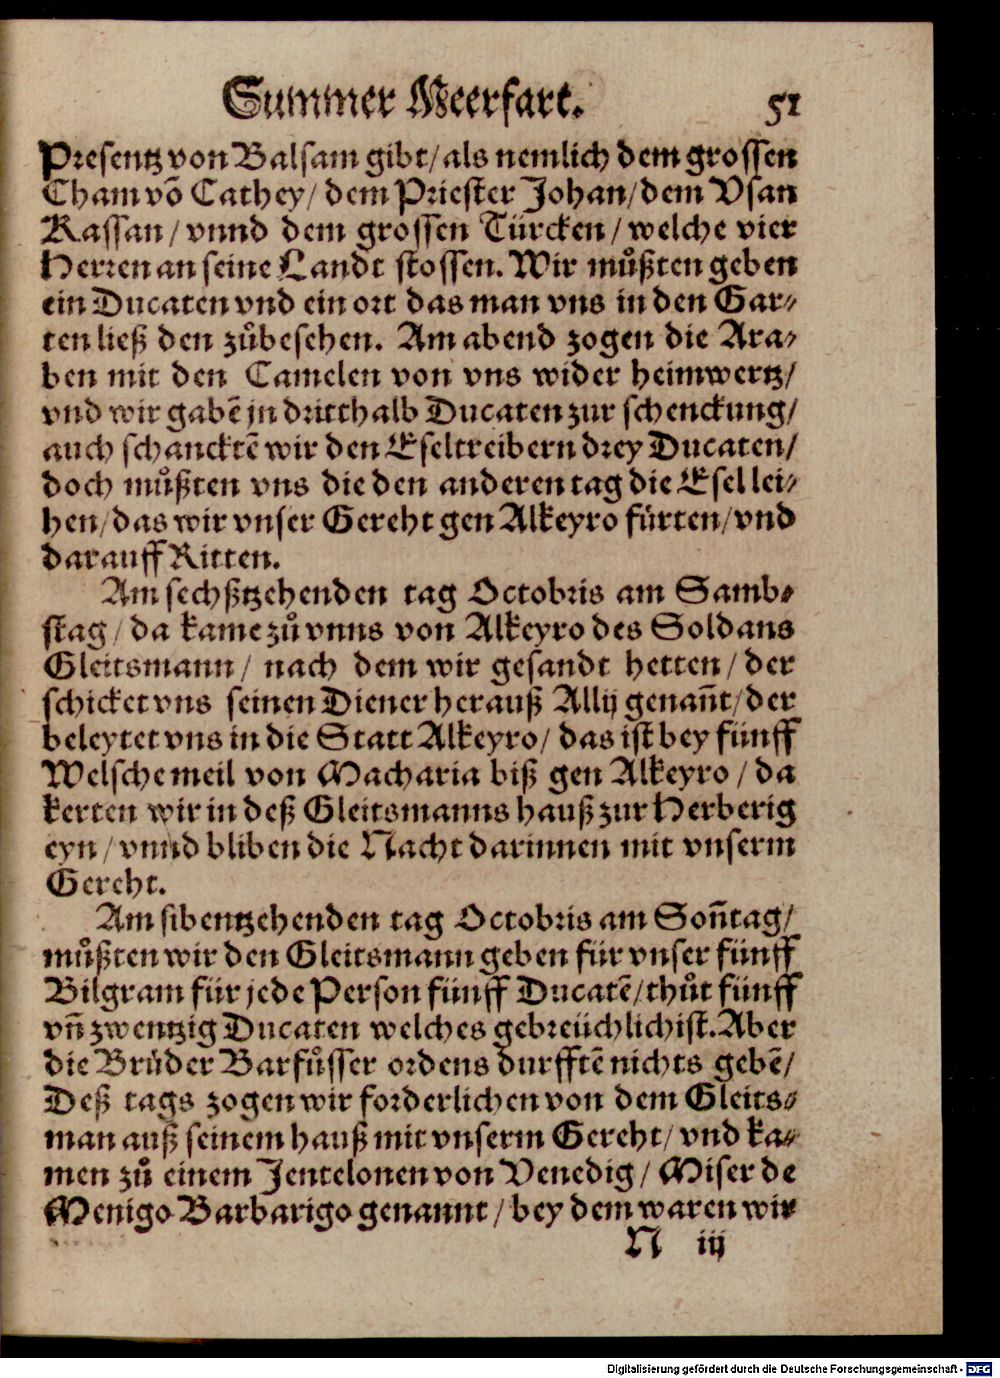 Summer Meerfart. 51
Presentz von Balsam gibt/als nemlich dem grossen
Cham võ Cathey/ dem Priester Johan/dem Vsan
Kassan/vnnd dem grossen Türcken/welche vier
Herren an seine Landt stossen. Wir můßten geben
ein Ducaten vnd ein ort das man vns in den Gar⸗
ten ließ den zůbesehen. Am abend zogen die Ara⸗
ben mit den Camelen von vns wider heimwertz/
vnd wir gabẽ jn dritthalb Ducaten zur schenckung/
auch schancktẽ wir den Eseltreibern drey Ducaten/
doch můßten vns die den anderen tag die Esel lei⸗
hen/das wir vnser Gereht gen Alkeyro fürten/vnd
darauff Ritten.
Am sechßtzehenden tag Octobris am Samb⸗
stag/da kame zů vnns von Alkeyro des Soldans
Gleitsmann/ nach dem wir gesandt hetten/der
schicket vns seinen Diener herauß Allij genañt/der
beleytet vns in die Statt Alkeyro/ das ist bey fünff
Welsche meil von Macharia biß gen Alkeyro/da
kerten wir in deß Gleitsmanns hauß zur Herberig
eyn/vnnd bliben die Nacht darinnen mit vnserm
Gereht.
Am sibentzehenden tag Octobris am Soñtag/
můßten wir den Gleitsmann geben für vnser fünff
Bilgram für jede Person fünff Ducatẽ/thůt fünff
vñ zwentzig Ducaten welches gebreüchlich ist. Aber
die Brüder Barfůsser ordens durfftẽ nichts gebẽ/
Deß tags zogen wir forderlichen von dem Gleits⸗
man auß seinem hauß mit vnserm Gereht/vnd ka⸗
men zů einem Jentelonen von Venedig/Miser de
Menigo Barbarigo genannt/bey dem waren wir
N iij
Digitalisierung gefördert durch die Deutsche Forschungsgemeinschaft - DFG